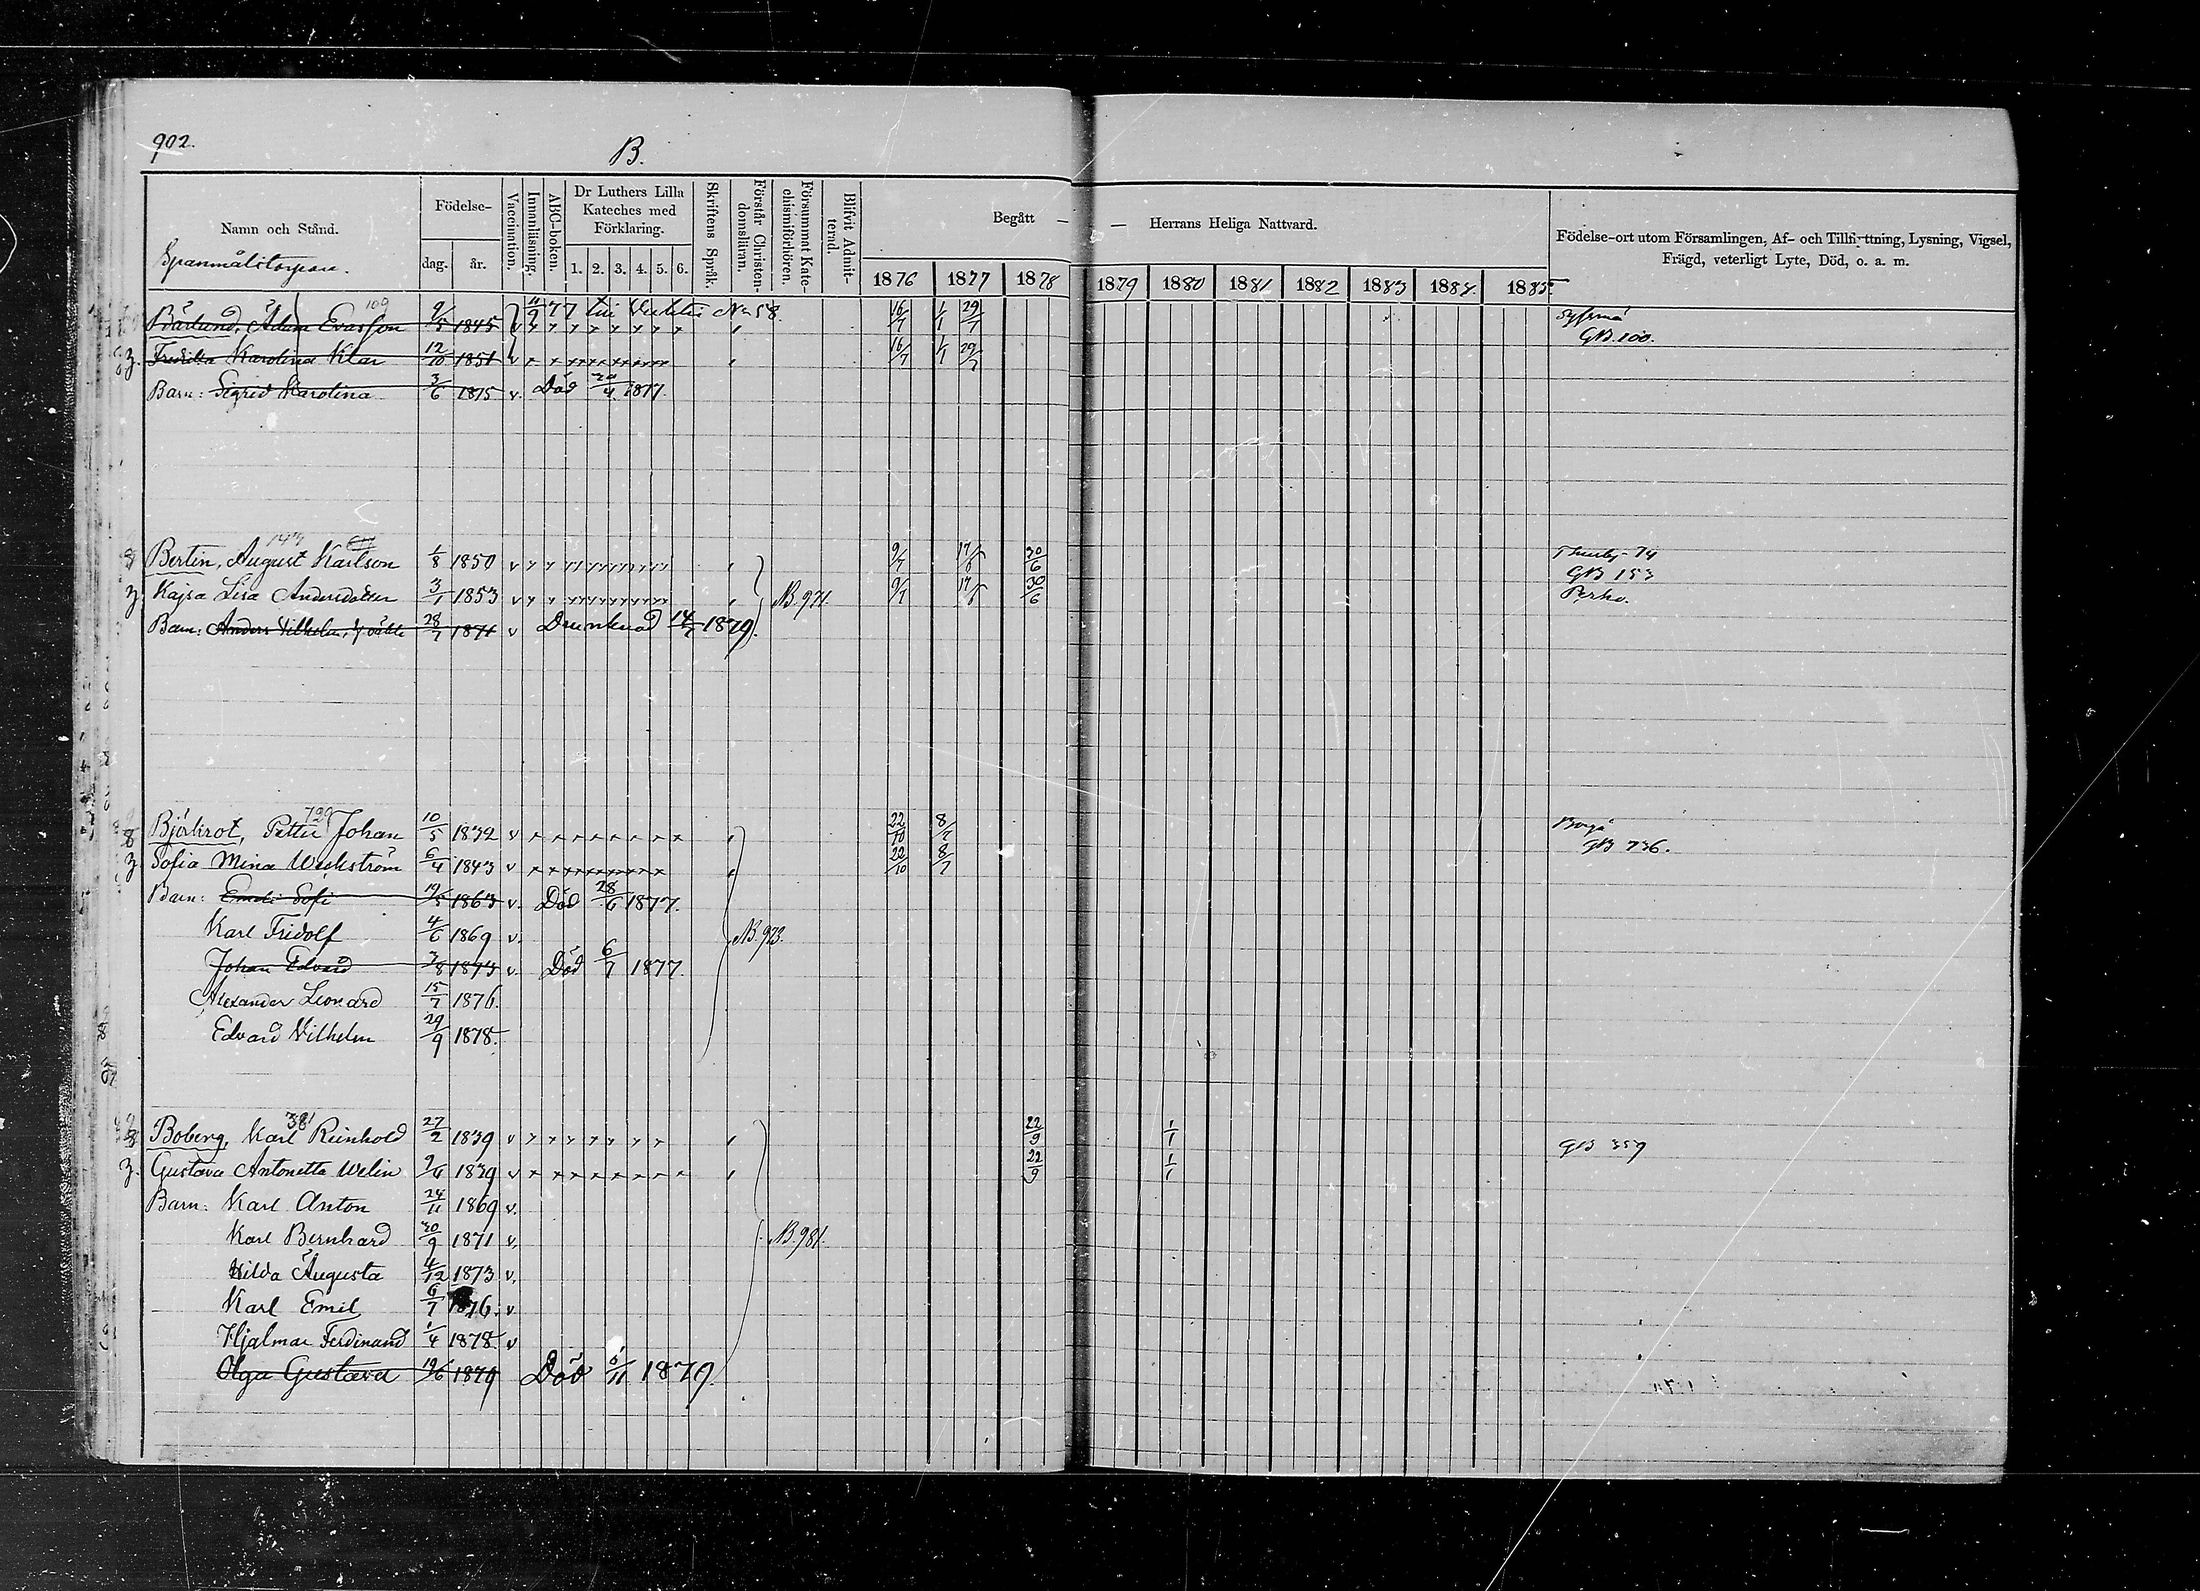 902.
B.
Namn och Stånd.
Födelse-
dag.
år.
Vaccination.
Innanläsning.
ABC-boken.
Dr Luthers Lilla Kateches med Förklaring.
1. 2. 3. 4. 5. 6.
Skriftens Språk.
Förstår Christendomsläran.
Försummat Katechismiförhören.
Blifvit Admitterad.
Begått — — Herrans Heliga Nattvard.
1876 1877 1878 1879 1880 1881 1882 1883 1884 1885
Födelse-ort utom Församlingen, Af- och Tillflyttning, Lysning, Vigsel,
Frägd, veterligt Lyte, Död, o. a. m.
109
Bärlund, Adam Evasson 9/5 1845 v 11/9 77 No 58. 16/7 1/1 29/7
GB. 100.
z. Fredrika Karolina Klar 12/10 1851 v 16/7 1/1 29/7
Barn: Sigrid Karolina 3/6 1875 v. Död 20/4 1877.
8 Bertin, August Karlson 1/8 1850 v 9/7 17/6 30/6
GB 153
z Kajsa Lisa Andersdotter 3/1 1853 v B. 971. 9/7 17/6 30/6 Perho.
Barn: Anders Vilhelm 28/7 1871 v Drunknad 14/7 1879.
729
8 Björkrot, Petter Johan 10/5 1832 v 22/10 8/7 Borgå
GB 736.
z Sofia Mina Weckström 6/4 1843 v 22/10 8/7
Barn: Emeli Sofi 19/5 1863 v. Död 28/6 1877.
Karl Fridolf 4/6 1869 v. B. 923.
Johan Edvard 3/8 1873 v. Död 6/7 1877
Alexander Leonard 15/7 1876.
Edvard Vilhelm 29/9 1878.
381
8 Boberg, Karl Reinhold 27/2 1839 v 22/9 1/1 GB 359
z. Gustava Antonetta Welin 9/6 1839 v 22/9 1/1
Barn: Karl Anton 24/11 1869 v.
Karl Bernhard 30/9 1871 v. B. 981.
Hilda Augusta 4/12 1873 v.
Karl Emil 6/7 1876. v
Hjalmar Ferdinand 1/4 1878. v
Olga Gustava 19/6 1879 Död 6/11 1879.